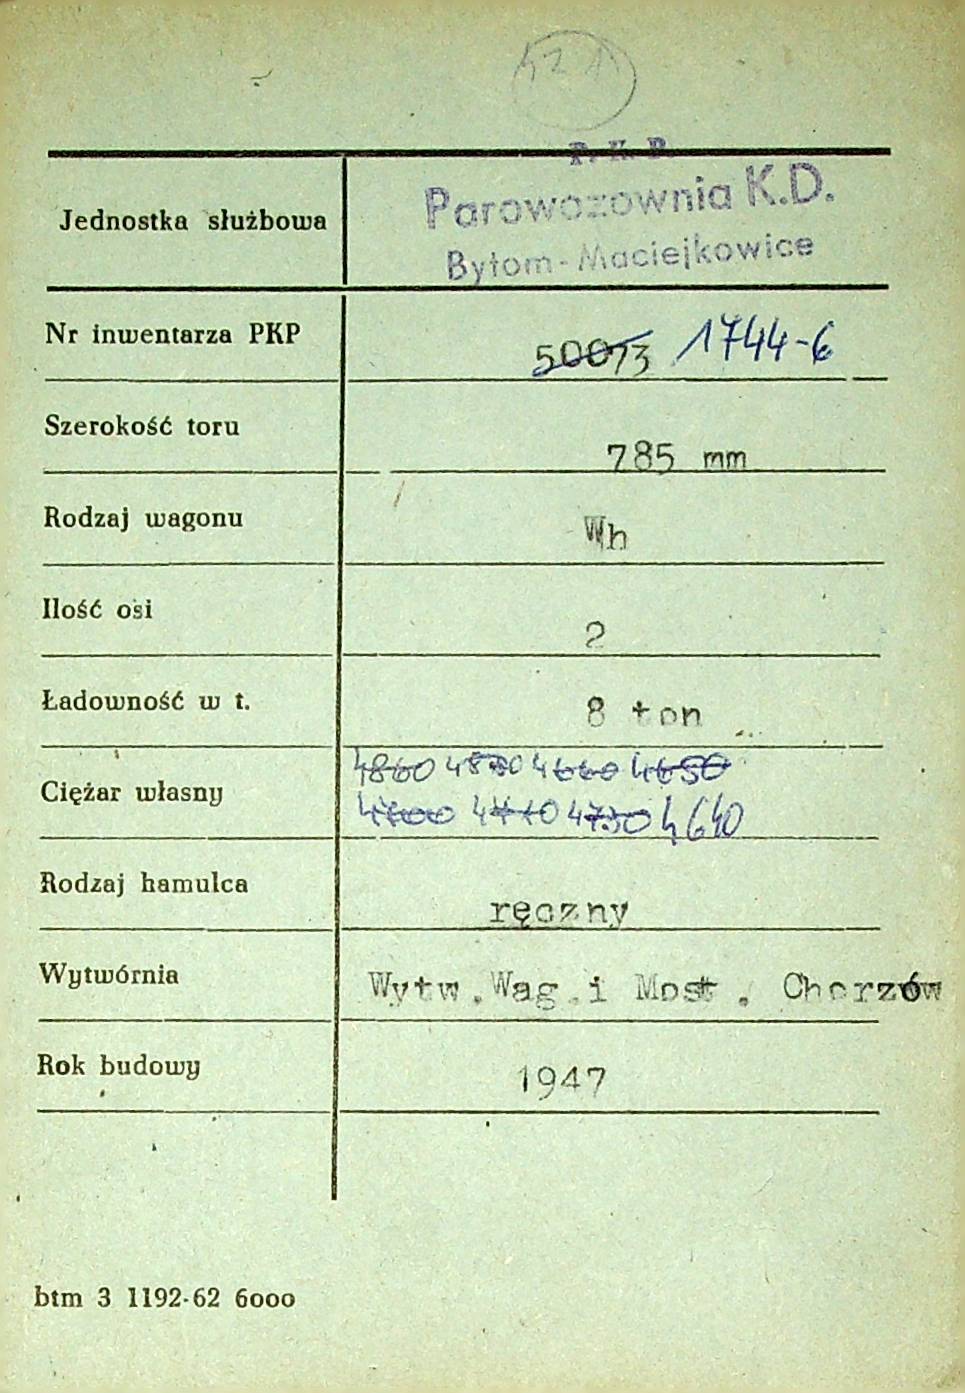 421
P. K. P.
Jednostka służbowa Parowozownia K.D.
Bytom-Maciejkowice
Nr inwentarza PKP 50073 1744-6
Szerokość toru 785 mm
Rodzaj wagonu Wh
Ilość osi 2
Ładowność w t. 8 ton
Ciężar własny 4860 4660 4650
4700 4730 4640
Rodzaj hamulca ręczny
Wytwórnia Wytw.Wag.i Most. Chorzów
Rok budowy 1947
btm 3 1192-62 6000